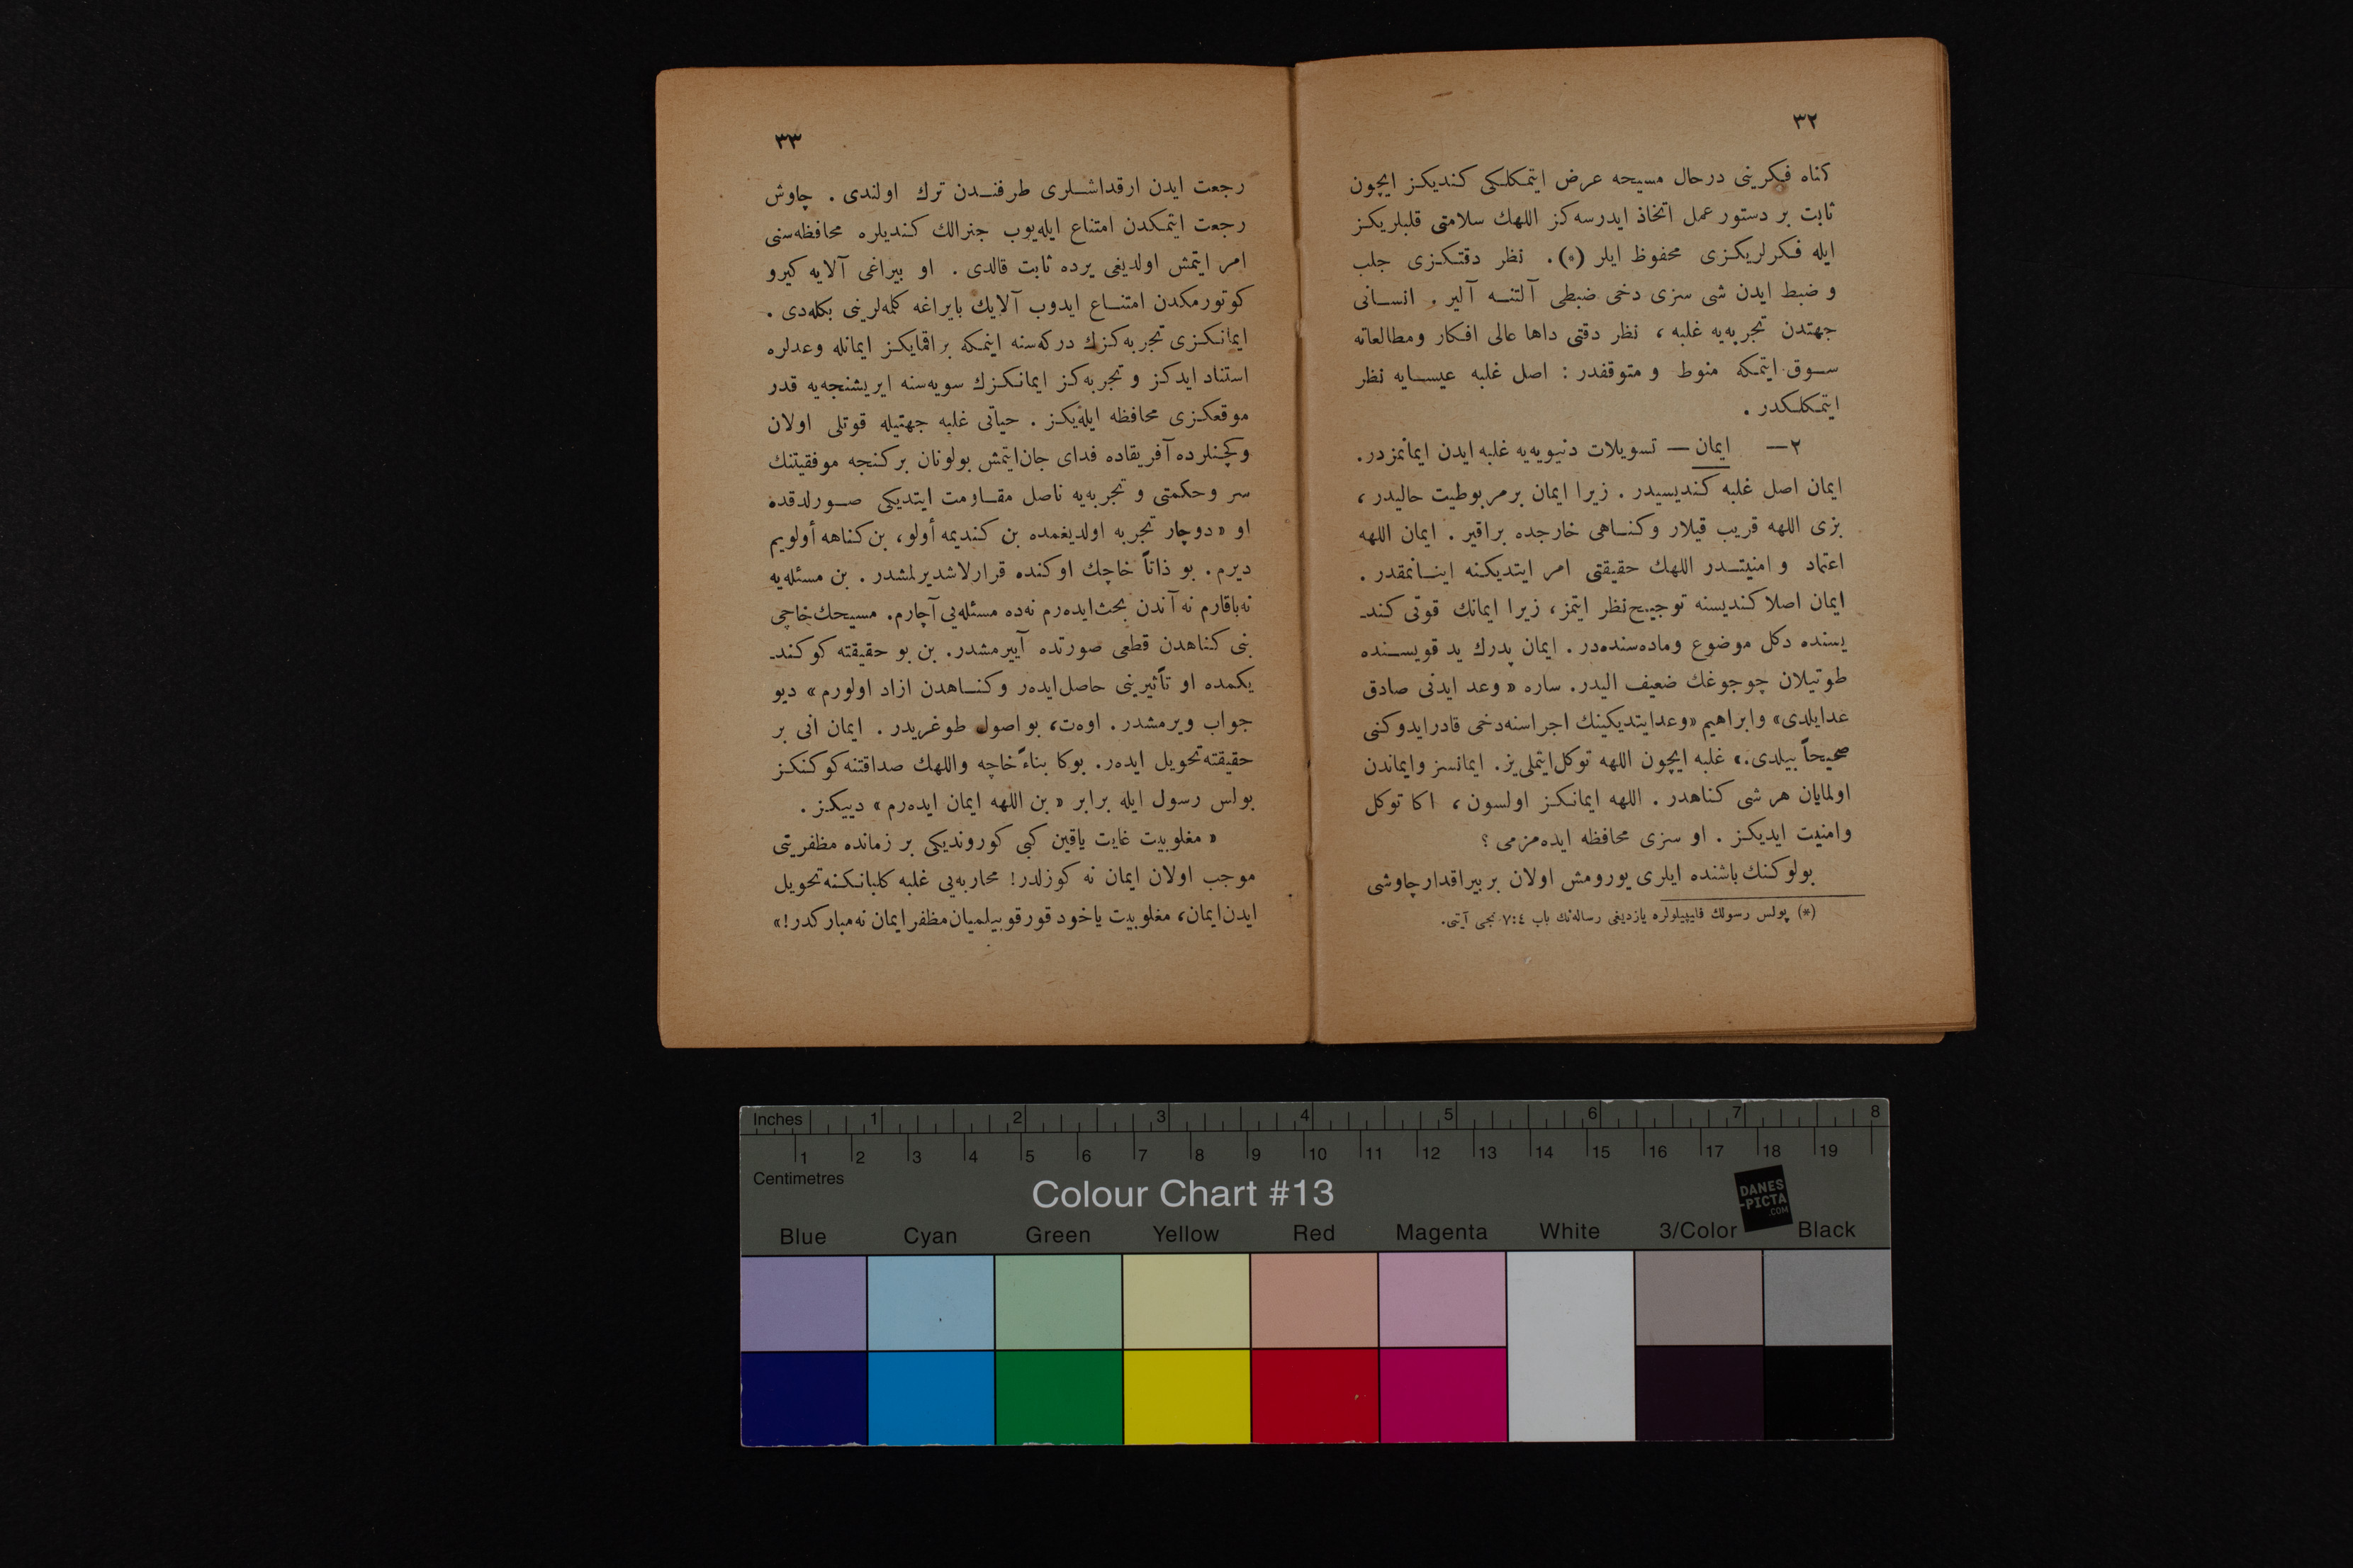 ٣٢
كناه فكرينى درحال مسيحه عرض ايتمكلكى كنديكز ايچون
ثابت بر دستور عمل اتخاذ ايدرسه‌كز اللهك سلامتى قلبلريكز
ايله فكرلريكزى محفوظ ايلر (*). نظر دقتكزى جلب
و ضبط ايدن شى سزى دخى ضبطى آلتنه آلير . انسانى
جهتدن تجربه‌يه غلبه ، نظر دقتى داها عالى افكار ومطالعاته
سوق ايتمكه منوط و متوقفدر : اصل غلبه عيسايه نظر
ايتمكلكدر .
٢ — ايمان — تسويلات دنيويه‌يه غلبه ايدن ايمانمزدر.
ايمان اصل غلبه كنديسيدر . زيرا ايمان برمربوطيت حاليدر ،
بزى اللهه قريب قيلار وكناهى خارجده براقير . ايمان اللهه
اعتماد و امنيتدر اللهك حقيقتى امر ايتديكنه اينانمقدر .
ايمان اصلا كنديسنه توجيح نظر ايتمز ، زيرا ايمانك قوتى كند-
يسنده دكل موضوع وماده‌سنده‌در . ايمان پدرك يد قويسنده
طوتيلان چوجوغك ضعيف اليدر. ساره « وعد ايدنى صادق
عدايلدى» وابراهيم «وعدايتديكينك اجراسنه‌دخى قادرايدوكنى
صحيحاً بيلدى.» غلبه ايچون اللهه توكل‌ايتملى‌يز. ايمانسز وايماندن
اولمايان هر شى كناهدر . اللهه ايمانكز اولسون ، اكا توكل
وامنيت ايديكز . او سزى محافظه ايده‌مزمى ؟
بولوكنك باشنده ايلرى يورومش اولان بر بيراقدار چاوشى
(*) پولس رسولك فليپيلولره يازديغى رساله‌نك باب ٧:٤ نجى آيتى.
٣٣
رجعت ايدن ارقداشلرى طرفندن ترك اولندى . چاوش
رجعت ايتمكدن امتناع ايله‌يوب جنرالك كنديلره محافظه‌سنى
امر ايتمش اولديغى يرده ثابت قالدى . او بيراغى آلايه كيرو
كوتورمكدن امتناع ايدوب آلايك بايراغه كلمه‌لرينى بكله‌دى .
ايمانكزى تجربه‌كزك دركه‌سنه اينمكه براقمايكز ايمانله وعدلره
استناد ايدكز و تجربه‌كز ايمانكزك سويه‌سنه ايريشنجه‌يه قدر
موقعكزى محافظه ايله‌يكز . حياتى غلبه جهتيله قوتلى اولان
وكچنلرده آفريقاده فداى جان‌ايتمش بولونان بركنجه موفقيتنك
سر وحكمتى و تجربه‌يه ناصل مقاومت ايتديكى صورلدقده
او « دوچار تجربه اولديغمده بن كنديمه أولو، بن كناهه أولويم
ديرم . بو ذاتاً خاچك اوكنده قرارلاشديرلمشدر . بن مسئله‌يه
نه‌باقارم نه آندن بحث‌ايده‌رم نه‌ده مسئله‌يى آچارم. مسيحك‌خاچى
بنى كناهدن قطعى صورتده آييرمشدر. بن بو حقيقته كوكند-
يكمده او تأثيرينى حاصل‌ايده‌ر وكناهدن ازاد اولورم » ديو
جواب ويرمشدر . اوه‌ت، بو اصول طوغريدر . ايمان انى بر
حقيقته تحويل ايده‌ر. بوكا بناءً خاچه واللهك صداقتنه كوكنكز
بولس رسول ايله برابر « بن اللهه ايمان ايده‌رم » دييكز .
« مغلوبيت غايت ياقين كبى كوروندیكى بر زمانده مظفريتى
موجب اولان ايمان نه كوزلدر! محاربه‌يى غلبه كلبانكنه تحويل
ايدن‌ايمان، مغلوبيت ياخود قورقو بيلميان‌مظفر ايمان نه‌مباركدر!»
Inches 1 2 3 4 5 6 7 8
1 2 3 4 5 6 7 8 9 10 11 12 13 14 15 16 17 18 19
Centimetres
Colour Chart #13
DANES
-PICTA
.COM
Blue Cyan Green Yellow Red Magenta White 3/Color Black